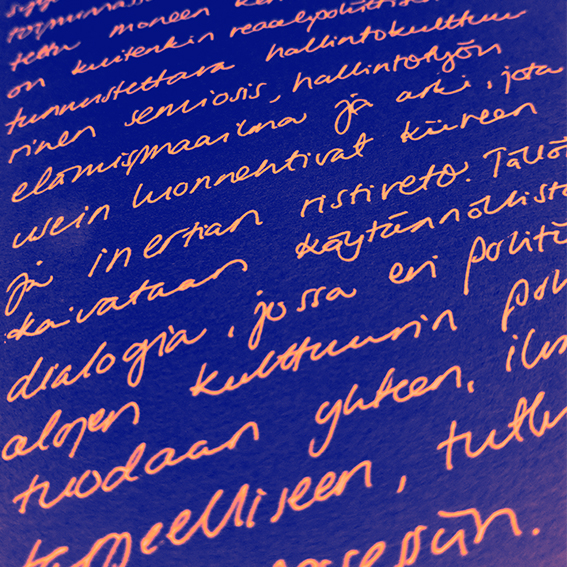 moneen
on kuitenkin reaalipoliittis
tunnustettava hallintokulttuu
rinen semiosis, hallintotyön
elämismaailma ja arki, jota
usein luonnehtivat kiireen
ja inertian ristiveto. Tällö
kaivataan käytännöllistä
dialogia, jossa eri politii
alojen kulttuurin
tuodaan yhteen,
tutk